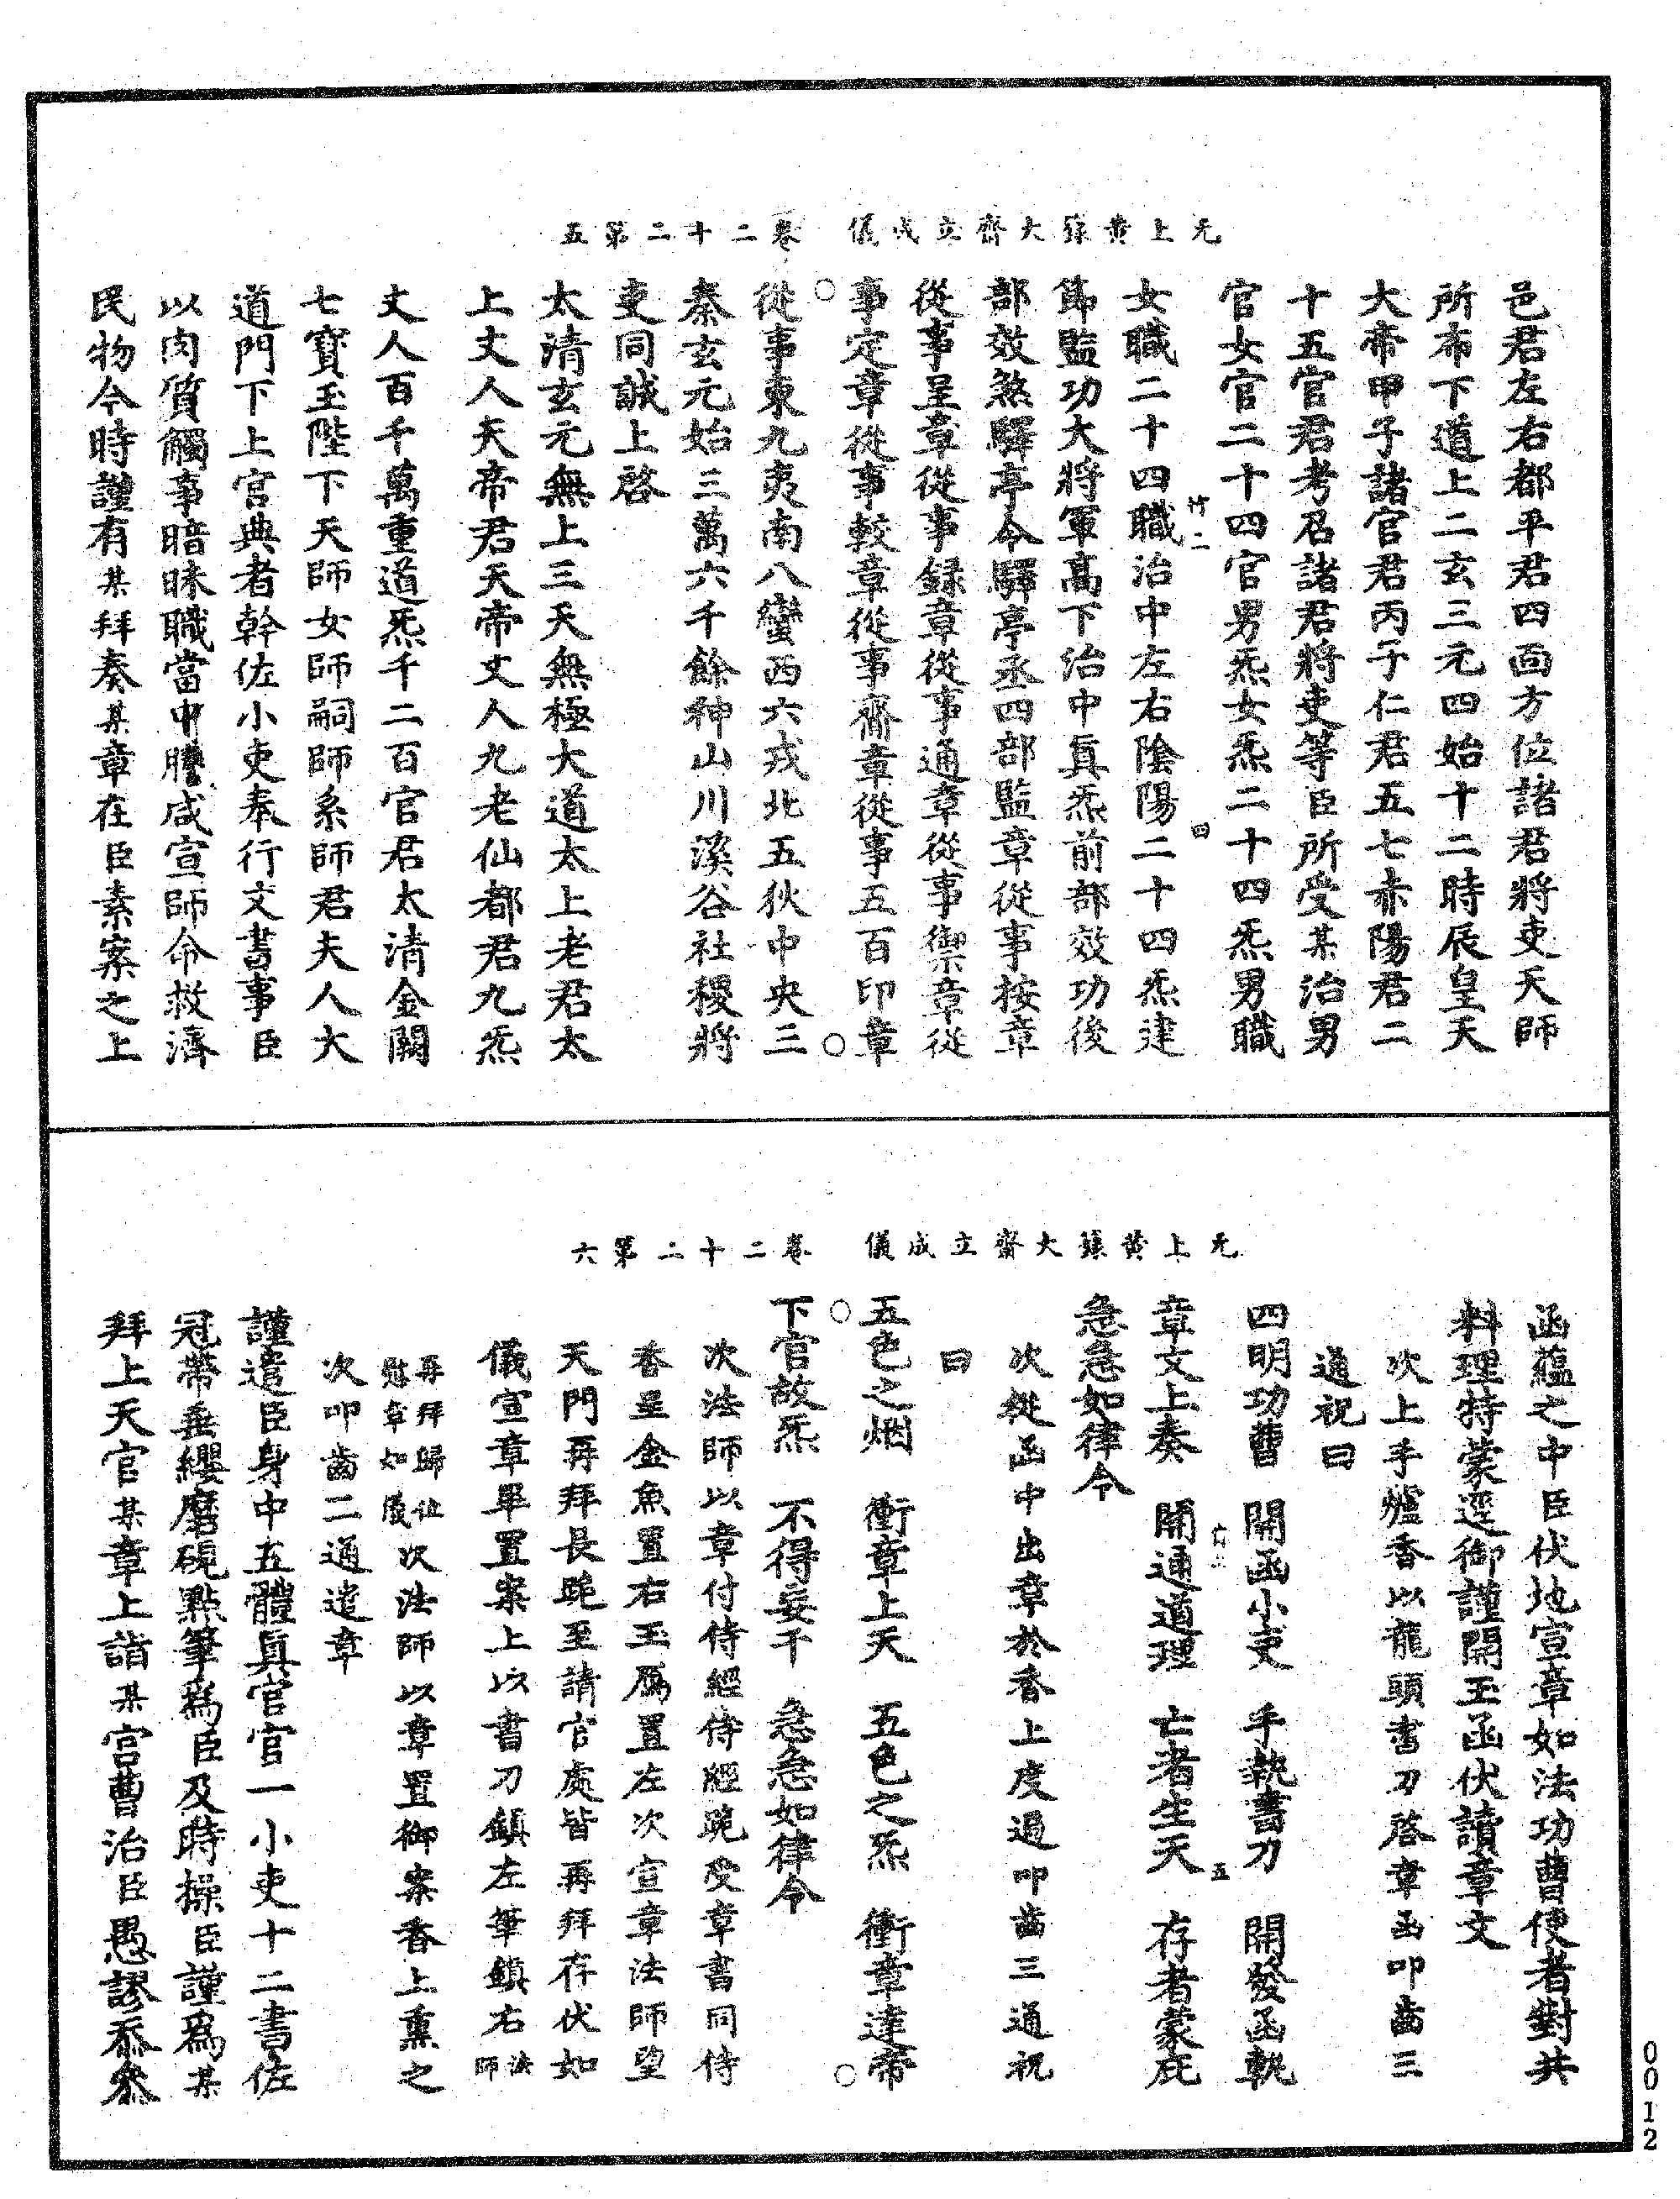 无上黃籙大齋立成儀　卷二十二第五
邑君左右都平君四面方位諸君將吏天師
所布下道上二玄三元四始十二時辰皇天
大帝甲子諸官君丙子仁君五七赤陽君二
十五官君考召諸君將吏等臣所受某治男
官女官二十四官男炁女炁二十四炁男職
竹二　四
女職二十四職治中左右陰陽二十四炁建
節監功大將軍高下治中真炁前部效功後
部效煞驛亭令驛亭丞四部監章從事按章
從事呈章從事録章從事通章從事禦章從
事定章從事較章從事齋章從事五百印章
從事東九夷南八蠻西六戎北五狄中央三
秦玄元始三萬六千餘神山川溪谷社稷將
吏同誠上啓
太清玄元無上三天無極大道太上老君太
上丈人天帝君天帝丈人九老仙都君九炁
丈人百千萬重道炁千二百官君太清金闕
七寶玉陛下天師女師嗣師系師君夫人大
道門下上官典者幹佐小吏奉行文書事臣
以肉質觸事暗昧職當申謄咸宣師命救濟
民物今時謹有某拜奏某章在臣素案之上
无上黃籙大齋立成儀　卷二十二第六
函蘊之中臣伏地宣章如法功曹使者對共
料理特蒙逕御謹開玉函伏讀章文
次上手爐香以龍頭書刀啓章函叩齒三
通祝曰
四明功曹　開函小吏　手執書刀　開發函軌
五
章文上奏　開通道理　亡者生天　存者蒙庇
急急如律令
次從函中出章於香上度過叩齒三通祝
曰
五色之烟　衝章上天　五色之炁　衝章達帝
下官故炁　不得妄干　急急如律令
次法師以章付侍經侍經跪受章書同侍
香呈金魚置右玉鴈置左次宣章法師望
天門再拜長跪至請官處皆再拜存伏如
儀宣章畢置案上以書刀鎮左筆鎮右法師
再拜歸位慰章如儀次法師以章置御案香上熏之
次叩齒二通遣章
謹遣臣身中五體真官官一小吏十二書佐
冠帶垂纓磨硯點筆爲臣及時操臣謹爲某
拜上天官某章上詣某宮曹治臣愚謬忝參
0012